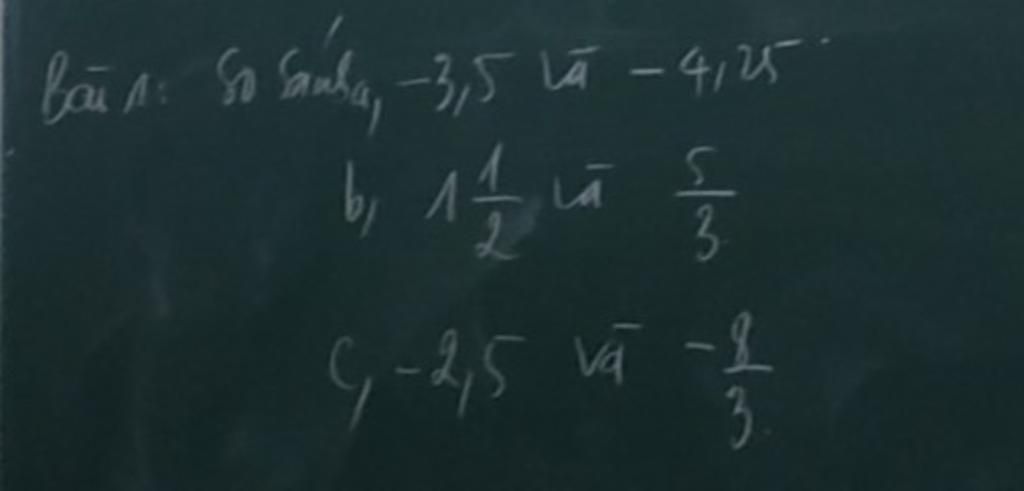 Bài 1: So sánh a, -3,5 và -4,25
b, 1 1/2 và 5/3
c, -2,5 và -8/3